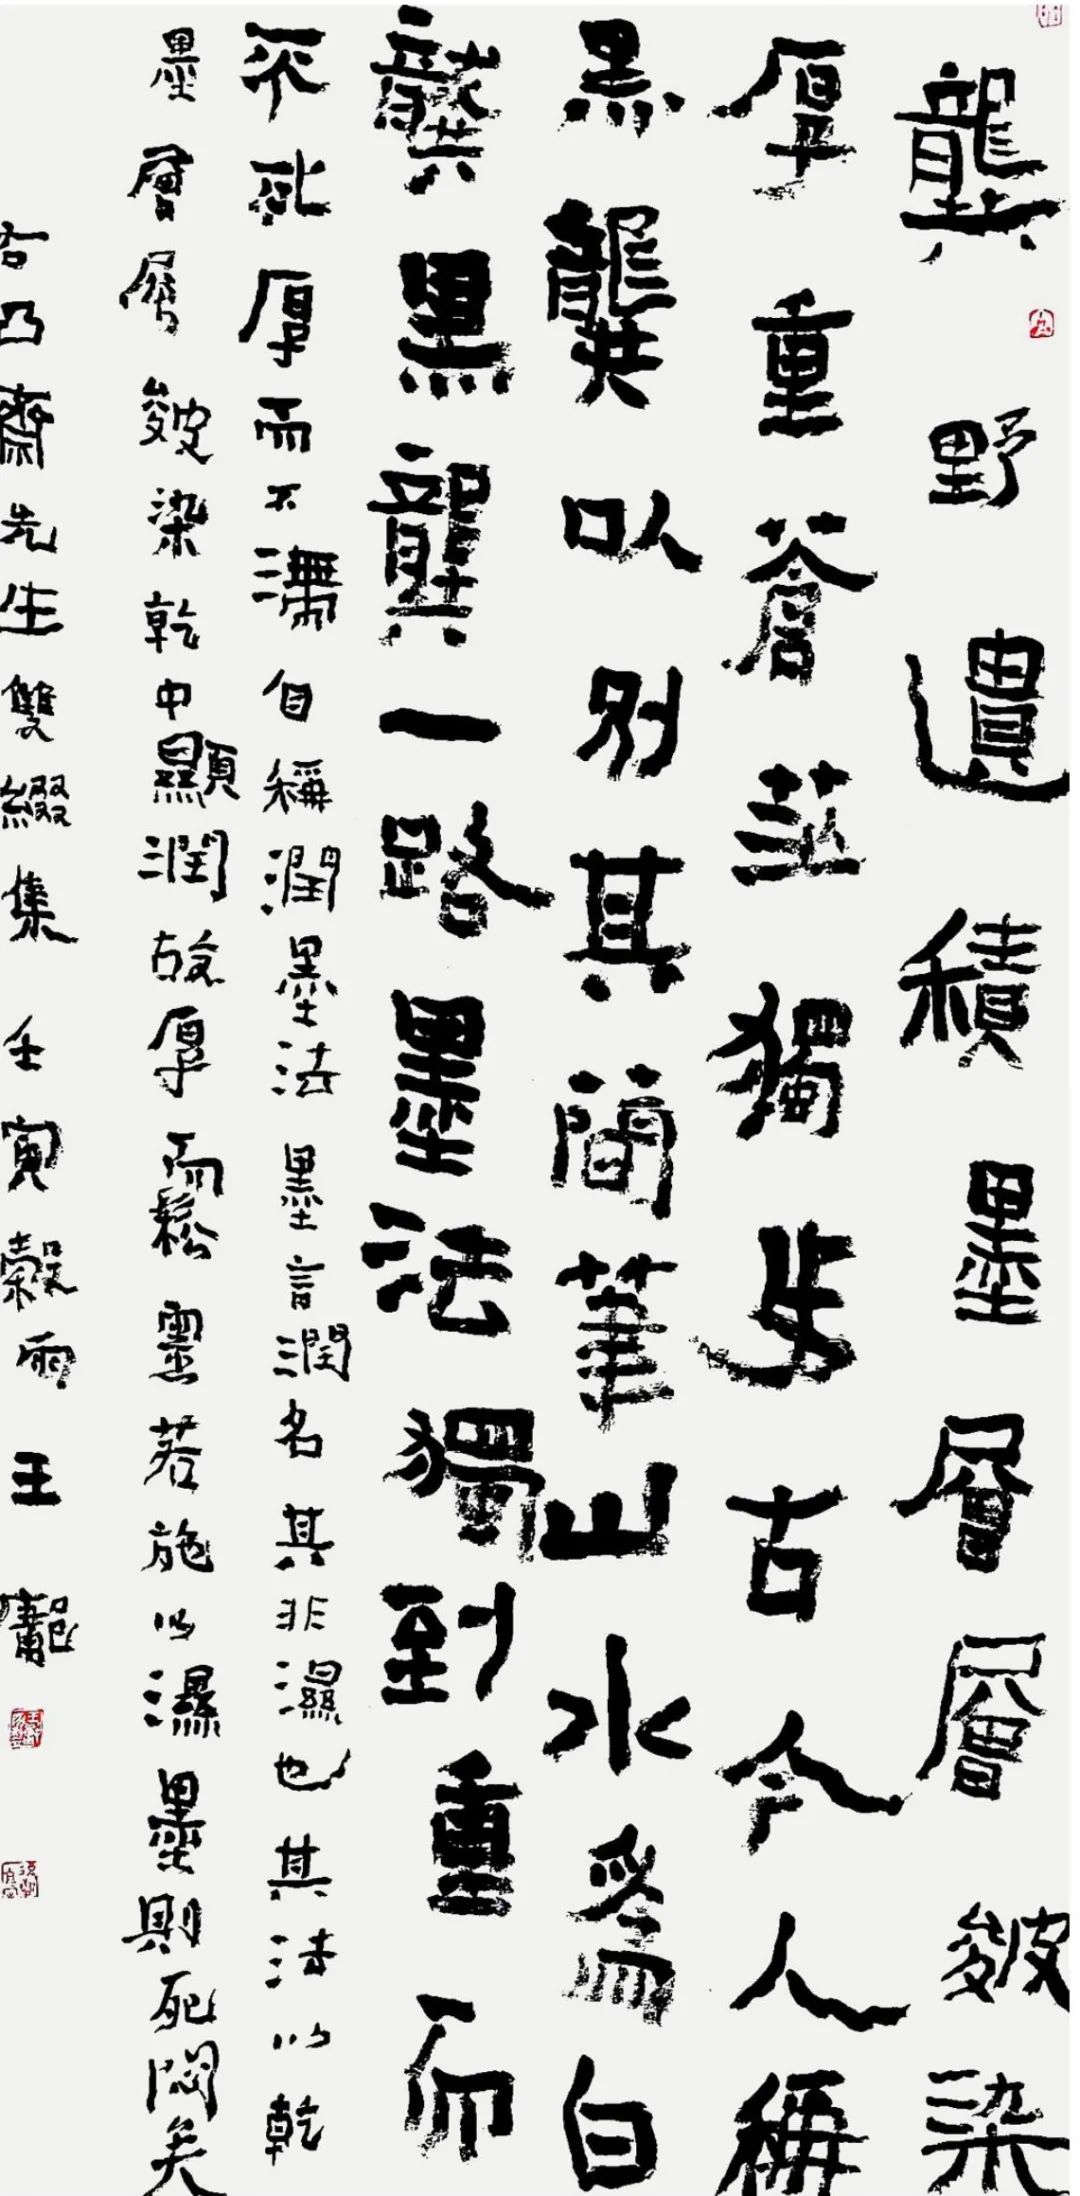 龔野遺積墨層層皴染
厚重蒼莽獨步古今人稱
黑龔以别其簡筆山水為白
龔黑龔一路墨法獨到重而
不死厚而不滯自稱潤墨法墨言潤名其非濕也其法以乾
墨層層皴染乾中顯潤故厚而鬆靈若施以濕墨則死悶矣
右凸齋先生雙綴集壬寅穀雨王